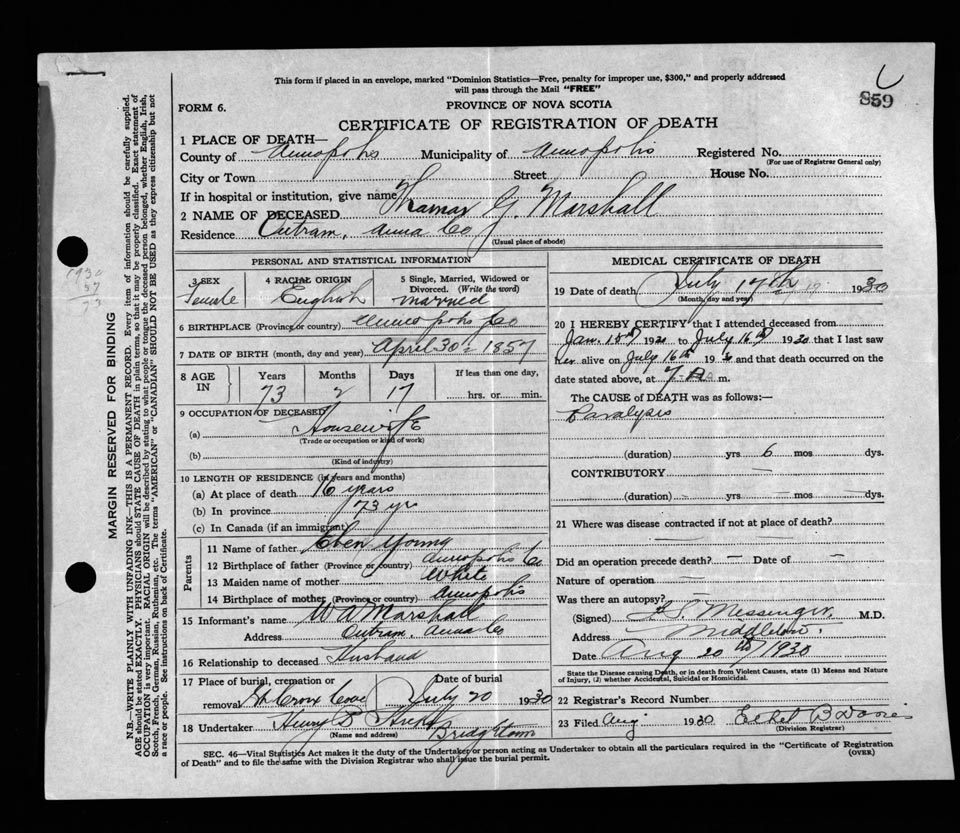 This form if placed in an envelope, marked "Dominion Statistics—Free, penalty for improper use, $300," and properly addressed
will pass through the Mail "FREE"
859
FORM 6.
PROVINCE OF NOVA SCOTIA
CERTIFICATE OF REGISTRATION OF DEATH
1 PLACE OF DEATH—
County of Annapolis Municipality of Annapolis Registered No.
(For use of Registrar General only)
City or Town Street House No.
If in hospital or institution, give name
2 NAME OF DECEASED Thamar G. Marshall
Residence Outram, Anna Co
(Usual place of abode)
PERSONAL AND STATISTICAL INFORMATION
3 SEX 4 RACIAL ORIGIN 5 Single, Married, Widowed or Divorced. (Write the word)
Female English married
6 BIRTHPLACE (Province or country) Annapolis Co
7 DATE OF BIRTH (month, day and year) April 30 1857
8 AGE IN Years Months Days If less than one day,
73 2 17 hrs. or min.
9 OCCUPATION OF DECEASED
(a) Housewife
(Trade or occupation or kind of work)
(b)
(Kind of industry)
10 LENGTH OF RESIDENCE (in years and months)
(a) At place of death 16 years
(b) In province 73 yrs
(c) In Canada (if an immigrant)
Parents
11 Name of father Eben Young
12 Birthplace of father (Province or country) Annapolis Co
13 Maiden name of mother White
14 Birthplace of mother (Province or country) Annapolis
15 Informant's name W A Marshall
Address Outram, Anna Co
16 Relationship to deceased Husband
17 Place of burial, cremation or removal Date of burial
St Croix Cove July 20 1930
18 Undertaker Henry B Hicks Bridgetown
(Name and address)
MEDICAL CERTIFICATE OF DEATH
19 Date of death July 17th 1930
(Month, day and year)
20 I HEREBY CERTIFY that I attended deceased from
Jan. 1930 to July 16th 1930 that I last saw
her alive on July 16th 19 and that death occurred on
date stated above, at 7 A m.
The CAUSE of DEATH was as follows:—
Paralysis
(duration) yrs 6 mos dys.
CONTRIBUTORY —
(duration) — yrs — mos — dys.
21 Where was disease contracted if not at place of death?
Did an operation precede death? — Date of —
Nature of operation —
Was there an autopsy? —
(Signed) Messinger M.D.
Address Middleton.
Date Aug 20th/1930
State the Disease causing Death, or in death from Violent Causes, state (1) Means and
Nature of Injury, (2) whether Accidental, Suicidal or Homicidal.
22 Registrar's Record Number
23 Filed Aug 1930 Ethel B Davies
(Division Registrar)
SEC. 46—Vital Statistics Act makes it the duty of the Undertaker or person acting as Undertaker to obtain all the particulars required in the "Certificate of Registration
of Death" and to file the same with the Division Registrar who shall issue the burial permit.
(OVER)
MARGIN RESERVED FOR BINDING
N.B.—WRITE PLAINLY WITH UNFADING INK—THIS IS A PERMANENT RECORD. Every item of information should be carefully supplied.
AGE should be stated EXACTLY. PHYSICIANS should STATE CAUSE OF DEATH in plain terms, so that it may be properly classified. Exact statement of
OCCUPATION is very important. RACIAL ORIGIN will be described by stating to what people or tongue the deceased person belonged, whether English, Irish,
Scotch, French, German, Russian, Ruthenian, etc. The terms "AMERICAN" or "CANADIAN" SHOULD NOT BE USED as they express citizenship but not
a race or people. See instructions on back of Certificate.
1930
57
73